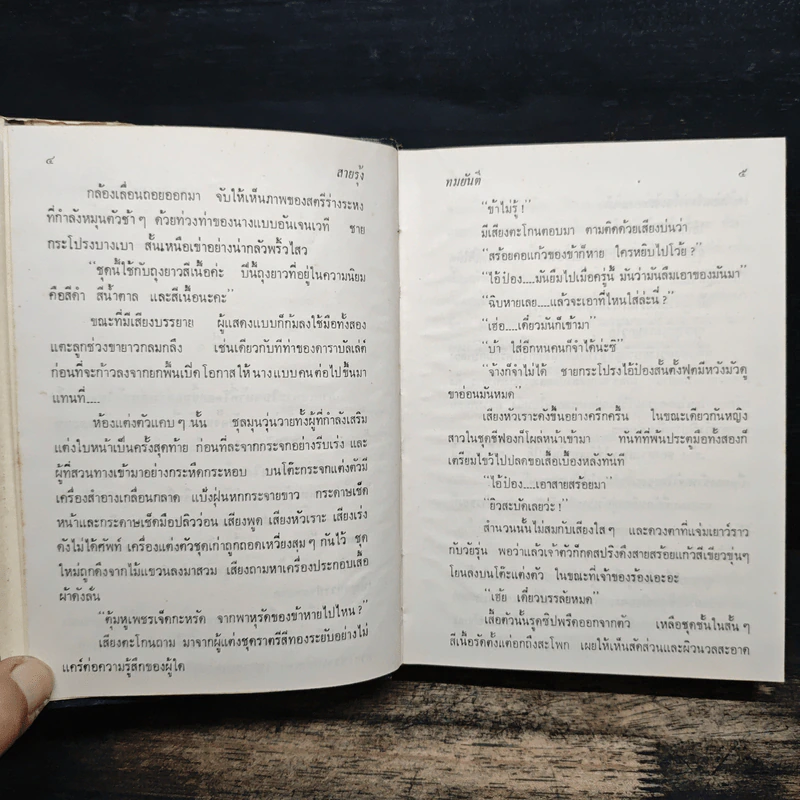 ๔
สายรุ้ง
กล้องเลื่อนถอยออกมา จับให้เห็นภาพของสตรีร่างระหง
ที่กำลังหมุนตัวช้า ๆ ด้วยท่วงท่าของนางแบบอันเจนเวที ชาย
กระโปรงบางเบา สั้นเหนือเข่าอย่างน่ากลัวพริ้วไสว
“ชุดนี้ใช้กับถุงยาวสีเนื้อค่ะ ปีนี้ถุงยาวที่อยู่ในความนิยม
คือสีดำ สีน้ำตาล และสีเนื้อนะคะ”
ขณะที่มีเสียงบรรยาย ผู้แสดงแบบก็ก้มลงใช้มือทั้งสอง
แตะลูกช่วงขายาวกลมกลึง เช่นเดียวกับทีท่าของดาราบัลเล่ต์
ก่อนที่จะก้าวลงจากยกพื้นเปิดโอกาสให้นางแบบคนต่อไปขึ้นมา
แทนที่....
ห้องแต่งตัวแคบ ๆ นั้น ชุลมุนวุ่นวายทั้งผู้ที่กำลังเสริม
แต่งใบหน้าเป็นครั้งสุดท้าย ก่อนที่ละจากกระจกอย่างรีบเร่ง และ
ผู้ที่สวนทางเข้ามาอย่างกระหืดกระหอบ บนโต๊ะกระจกแต่งตัวมี
เครื่องสำอางเกลื่อนกลาด แป้งฝุ่นหกกระจายขาว กระดาษเช็ด
หน้าและกระดาษเช็ดมือปลิวว่อน เสียงพูด เสียงหัวเราะ เสียงเร่ง
ดังไม่ได้ศัพท์ เครื่องแต่งตัวชุดเก่าถูกถอดเหวี่ยงสุม ๆ กันไว้ ชุด
ใหม่ถูกดึงจากไม้แขวนลงมาสวม เสียงถามหาเครื่องประกอบเสื้อ
ผ้าดังลั่น
“ตุ้มหูเพชรเจ็ดกะหรัด จากพาหุรัดของข้าหายไปไหน ?”
เสียงตะโกนถาม มาจากผู้แต่งชุดราตรีสีทองระยับอย่างไม่
แคร์ต่อความรู้สึกของผู้ใด
ทมยันตี
๕
“ข้าไม่รู้ !”
มีเสียงตะโกนตอบมา ตามติดด้วยเสียงบ่นว่า
“สร้อยคอแก้วของข้าก็หาย ใครหยิบไปโว้ย ?”
“ไอ้ป๋อง....มันยืมไปเมื่อครู่นี้ มันว่ามันลืมเอาของมันมา”
“ฉิบหายเลย....แล้วจะเอาที่ไหนใส่ล่ะนี่ ?”
“เฮ่อ....เดี๋ยวมันก็เข้ามา”
“บ้า ใส่อีกหนคนก็จำได้น่ะซิ”
“จ้างก็จำไม่ได้ ชายกระโปรงไอ้ป๋องสั้นตั้งฟุตมีหวังมัวดู
ขาอ่อนมันหมด”
เสียงหัวเราะดังขึ้นอย่างครึกครื้น ในขณะเดียวกันหญิง
สาวในชุดชีฟองก็โผล่หน้าเข้ามา ทันทีที่พ้นประตูมือทั้งสองก็
เตรียมไขว้ไปปลดขอเสื้อเบื้องหลังทันที
“ไอ้ป๋อง....เอาสายสร้อยมา”
“ยิวสะบัดเลยว่ะ !”
สำนวนนั้นไม่สมกับเสียงใส ๆ และดวงตาที่แจ่มเยาว์ราว
กับวัยรุ่น พอว่าแล้วเจ้าตัวก็กดสปริงดึงสายสร้อยแก้วสีเขียวขุ่นๆ
โยนลงบนโต๊ะแต่งตัว ในขณะที่เจ้าของร้องเอะอะ
“เฮ้ย เดี๋ยวบรรลัยหมด”
เสื้อตัวนั้นรูดซิปพรืดออกจากตัว เหลือชุดชั้นในสั้น ๆ
สีเนื้อรัดตั้งแต่อกถึงสะโพก เผยให้เห็นสัดส่วนและผิวนวลสะอาด